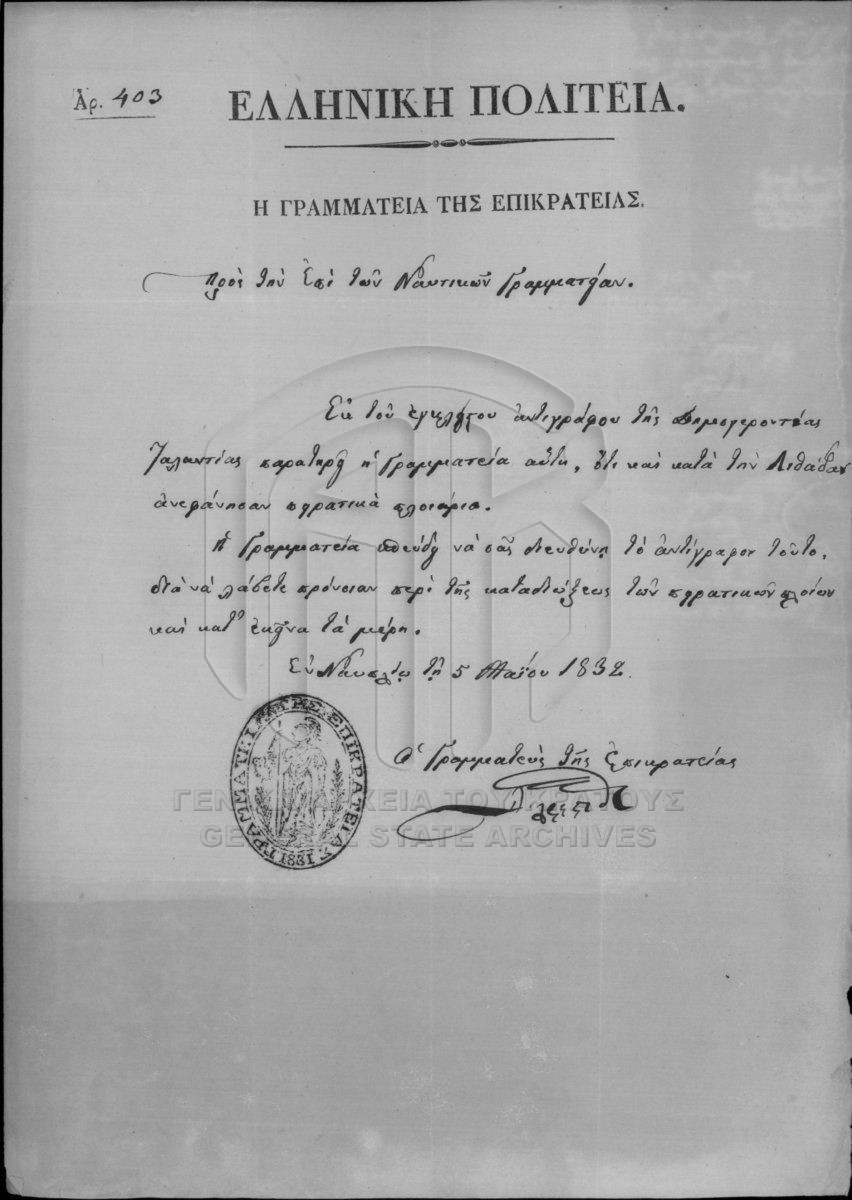 Αρ. 403
ΕΛΛΗΝΙΚΗ ΠΟΛΙΤΕΙΑ.
Η ΓΡΑΜΜΑΤΕΙΑ ΤΗΣ ΕΠΙΚΡΑΤΕΙΑΣ.
Πρὸς τὴν Ἐπὶ τῶν Ναυτικῶν Γραμματείαν.
Ἐκ τοῦ ἐγκλείστου ἀντιγράφου τῆς Δημογεροντίας
Ταλαντίας παρατηρεῖ ἡ Γραμματεία αὕτη, ὅτι καὶ κατὰ τὴν Λιθάδαν
ἀνεφάνησαν πειρατικὰ πλοιάρια.
Ἡ Γραμματεία σπεύδει νὰ σᾶς διευθύνῃ τὸ ἀντίγραφον τοῦτο,
διὰ νὰ λάβετε πρόνοιαν περὶ τῆς καταδιώξεως τῶν πειρατικῶν πλοίων
καὶ κατ' ἐκεῖνα τὰ μέρη.
Ἐν Ναυπλίῳ τῇ 5 Μαΐου 1832.
Ὁ Γραμματεὺς τῆς Ἐπικρατείας
ΓΡΑΜΜΑΤΕΙΑ ΤΗΣ ΕΠΙΚΡΑΤΕΙΑΣ
1831
ΓΕΝΙΚΑ ΑΡΧΕΙΑ ΤΟΥ ΚΡΑΤΟΥΣ
GENERAL STATE ARCHIVES